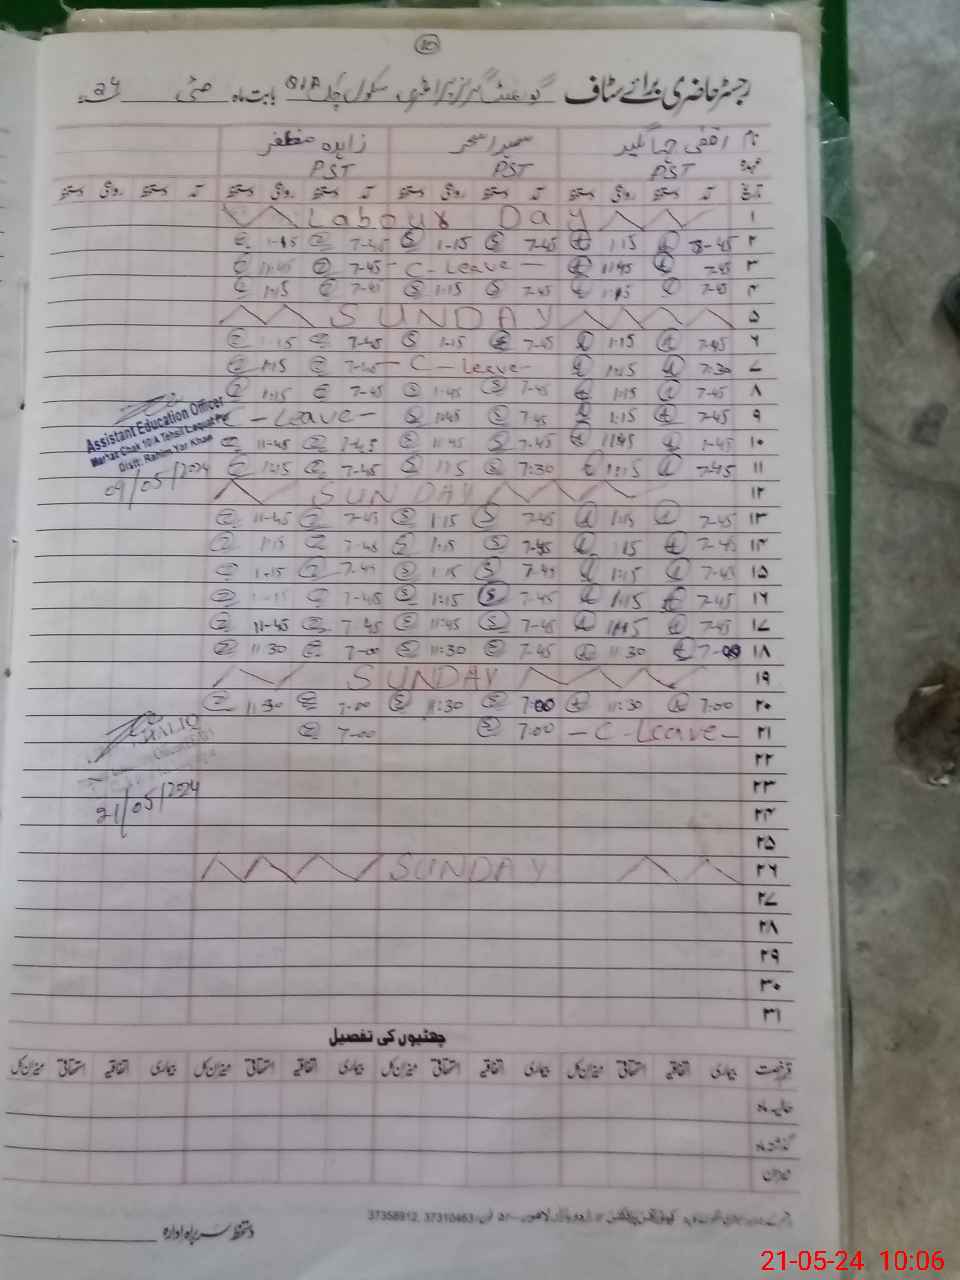 10
رجسٹر حاضری برائے سٹاف گورنمنٹ گرلز پرائمری سکول چک 91A بابت ماہ مئی 24ء
نام اقصٰی جہانگیر سمیرا سحر زاہدہ مظفر
عہدہ PST PST PST
تاریخ آمد دستخط روانگی دستخط آمد دستخط روانگی دستخط آمد دستخط روانگی دستخط آمد دستخط روانگی دستخط
۱ Labour Day
۲ 1-15 7-45 1-15 7-45 1:15 8-45
۳ 11:45 7-45 - C - Leave - 11:45 7-45
۴ 1:15 7-45 1:15 7-45 1:15 7-45
۵ SUNDAY
۶ 1:15 7-45 1-15 7-45 1:15 7-45
۷ 1:15 7-45 - C - Leave - 1:15 7:30
۸ 1:15 7-45 1-45 7-45 1:15 7-45
۹ C - Leave - 1:45 7-45 1:15 7-45
۱۰ 11-45 7-45 11:45 7-45 11:45 7-45
۱۱ 1:15 7-45 1:15 7:30 1:15 7-45
۱۲ SUNDAY
۱۳ 11-45 7-45 1:15 7-45 1:15 7-45
۱۴ 1:15 7-45 1:15 7-45 1:15 7-45
۱۵ 1-15 7-45 1:15 7-45 1:15 7-45
۱۶ 7-45 1:15 7-45 1:15 7-45
۱۷ 11-45 7-45 11:45 7-45 11:45 7-45
۱۸ 11:30 7-00 11:30 7-45 11:30 7-00
۱۹ SUNDAY
۲۰ 11-30 7-00 11:30 7:00 11:30 7:00
۲۱ 7-00 7:00 - C - Leave -
۲۲
۲۳
۲۴
۲۵
۲۶ SUNDAY
۲۷
۲۸
۲۹
۳۰
۳۱
Assistant Education Officer
Markaz Chak 10/A Tehsil Liaquat Pur
Distt: Rahim Yar Khan
09/05/2024
KHALIQ
21/05/2024
چھٹیوں کی تفصیل
رخصت بیماری اتفاقیہ استحقاقی میزان کل بیماری اتفاقیہ استحقاقی میزان کل بیماری اتفاقیہ استحقاقی میزان کل بیماری اتفاقیہ استحقاقی میزان کل
حالیہ ماہ
گذشتہ ماہ
میزان
37358912, 37310463
دستخط سربراہ ادارہ
21-05-24 10:06